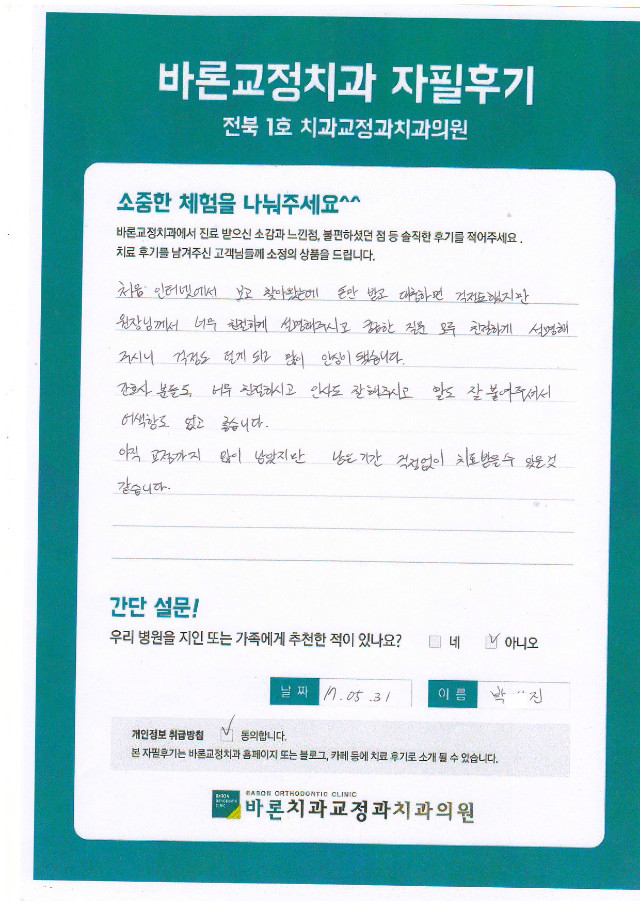 바론교정치과 자필후기
전북 1호 치과교정과치과의원
소중한 체험을 나눠주세요^^
바론교정치과에서 진료 받으신 소감과 느낀점, 불편하셨던 점 등 솔직한 후기를 적어주세요 .
치료 후기를 남겨주신 고객님들께 소정의 상품을 드립니다.
처음 인터넷에서 보고 찾아왔는데 돈만 받고 대충하면 걱정도했지만
원장님께서 너무 친절하게 설명해주시고 궁금한 질문 모두 친절하게 설명해
주시니 걱정도 덜게 되고 많이 안심이 됐습니다.
간호사 분들도 너무 친절하시고 인사도 잘해주시고 말도 잘 붙여주셔서
어색함도 없고 좋습니다.
아직 교정까지 많이 남았지만 남은기간 걱정없이 치료받을수 있을것
같습니다.
간단 설문!
우리 병원을 지인 또는 가족에게 추천한 적이 있나요? 네 아니오
날 짜 17.05.31 이 름 박 ¨진
개인정보 취급방침 동의합니다.
본 자필후기는 바론교정치과 홈페이지 또는 블로그, 카페 등에 치료 후기로 소개 될 수 있습니다.
BARON ORTHODONTIC CLINIC
바론치과교정과치과의원